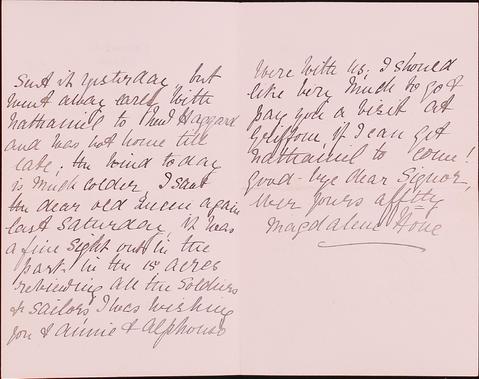 sent it yesterday, but
went away early with
Nathaniel to Haggard
and was not home till
late, the wind today
is much colder, I saw
the dear old Queen again
last Saturday, it was
a fine sight out in the
park in the 15 acres
reviewing all the Soldiers
& sailors I was wishing
you & Annie & Alphonso
Were with us, I should
like very much to go &
pay you a visit at
if I can get
Nathaniel to come!
good-bye dear Signor,
Ever yours affctly
Magdalene Hone